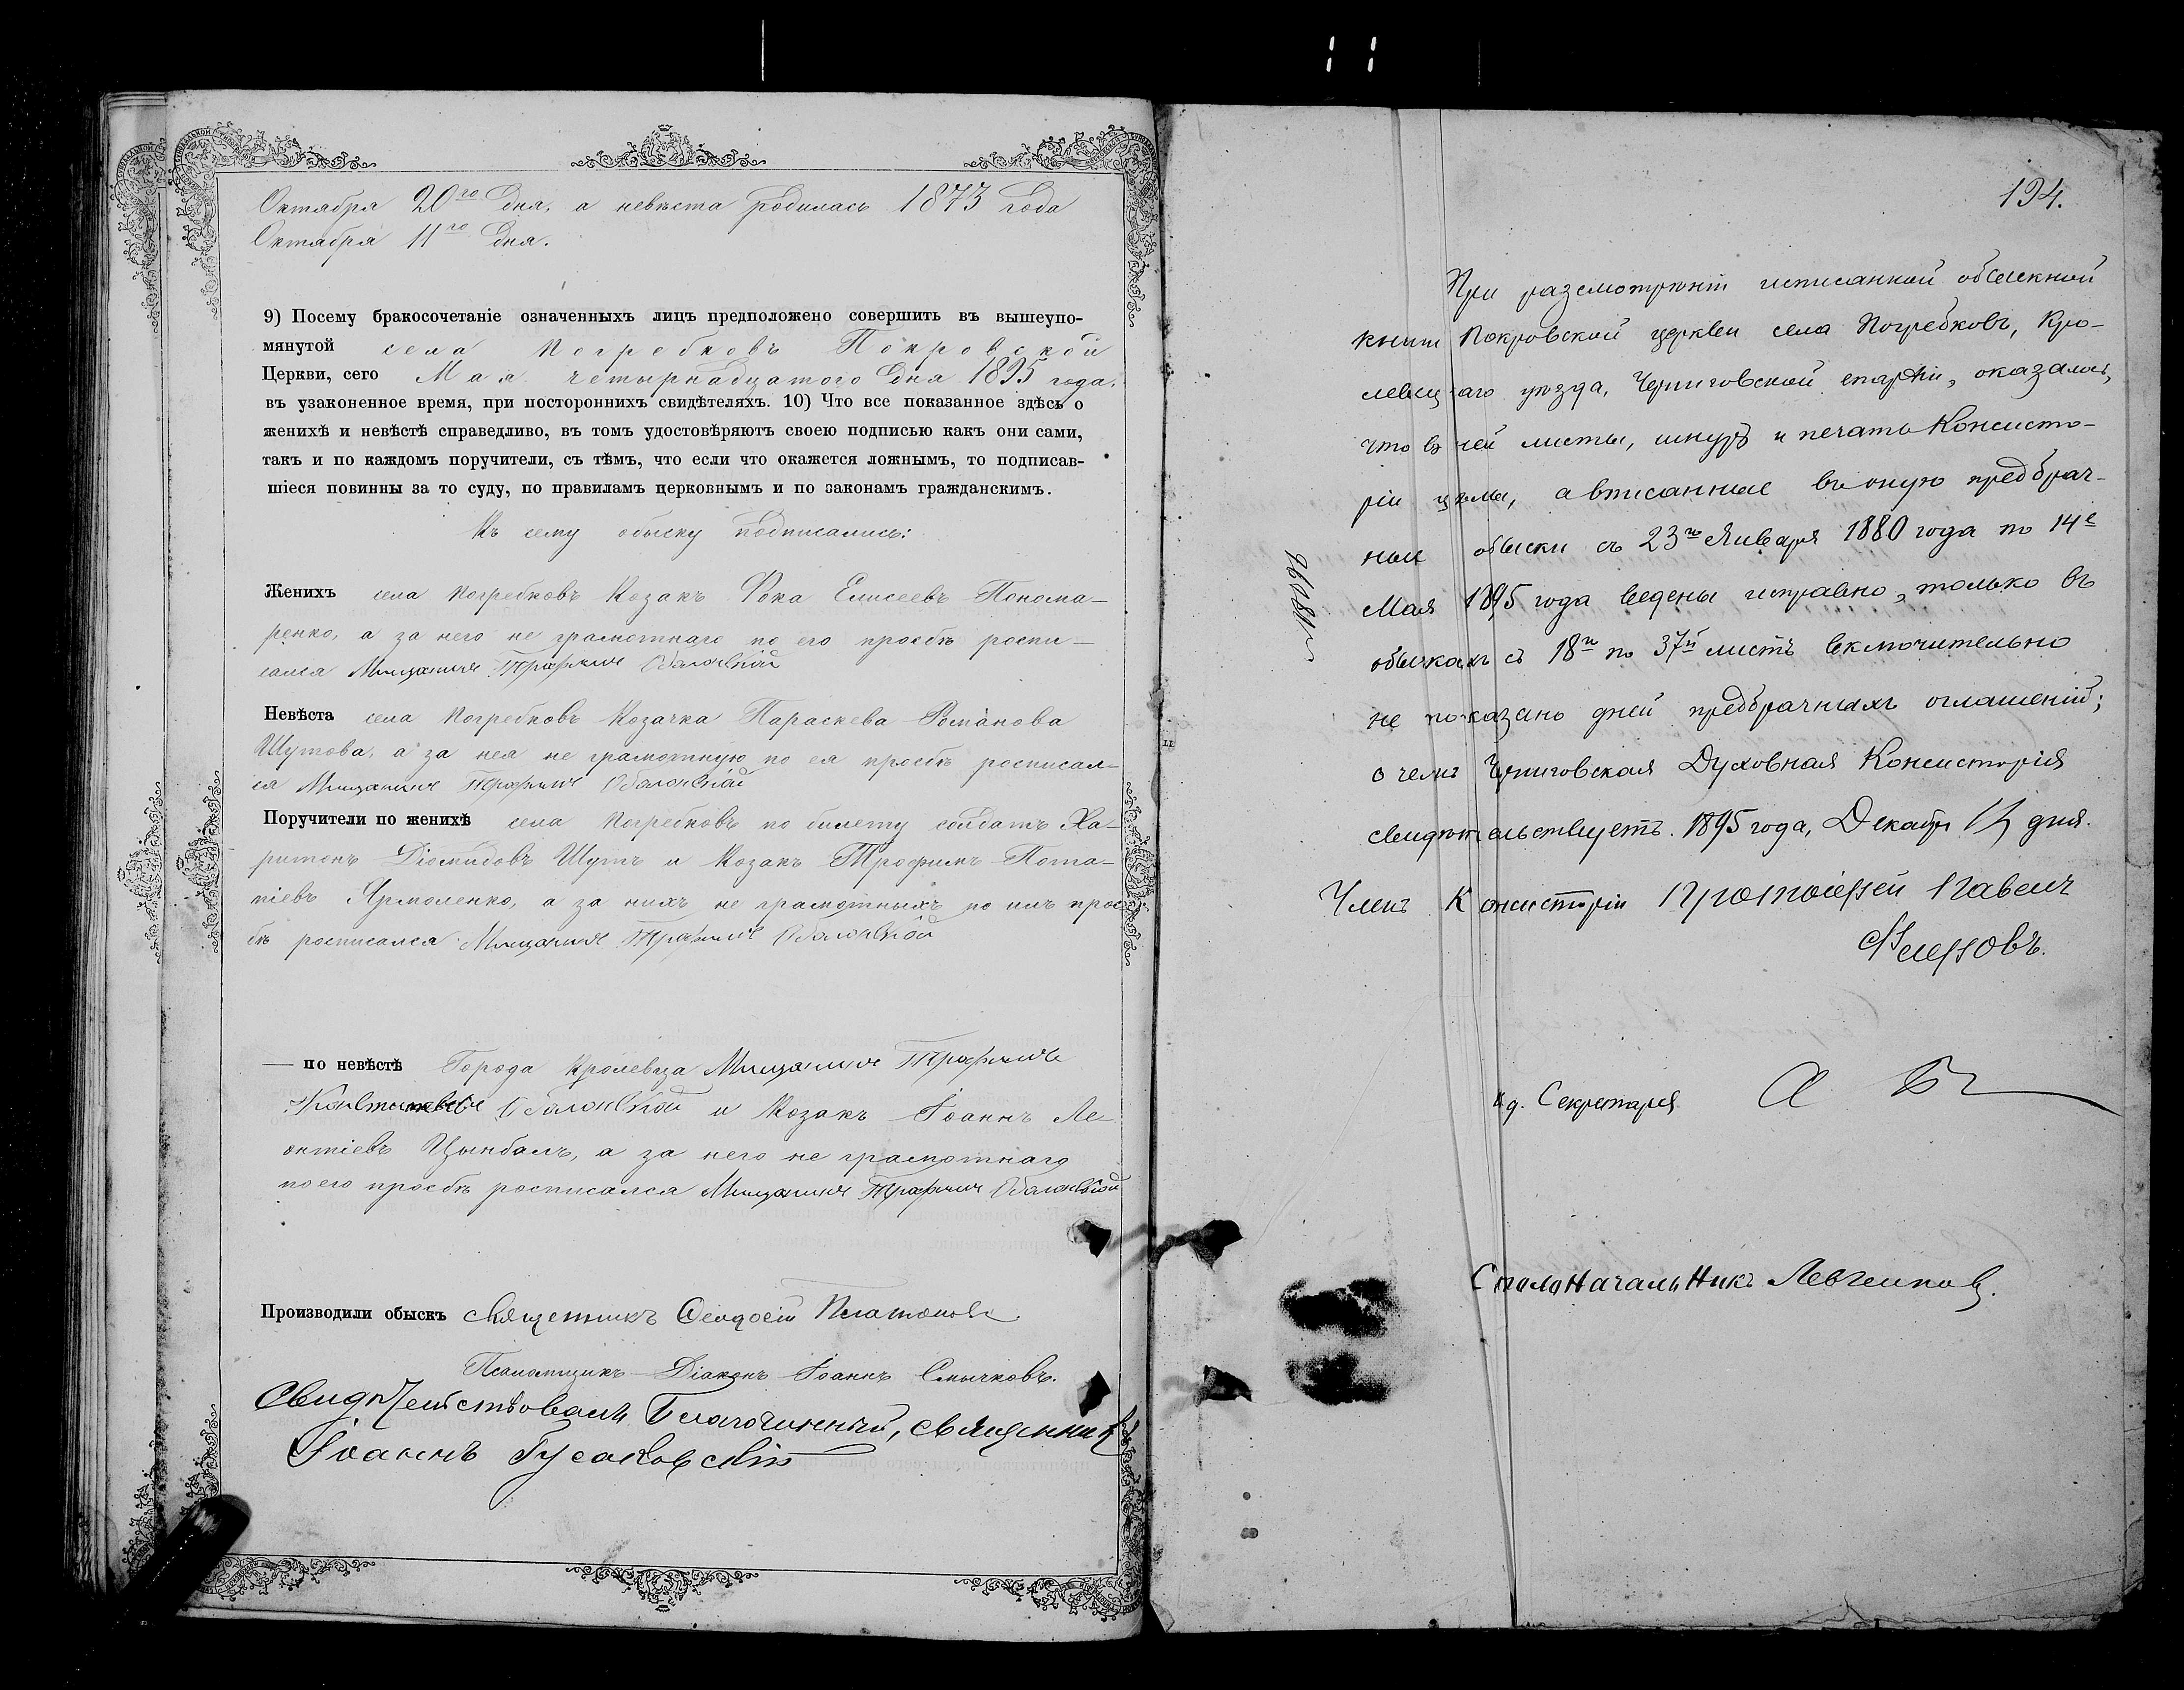 Октября 20го дня, а невѣста родилась 1873 года
Октября 11го дня.
9) Посему бракосочетаніе означенныхъ лицъ предположено совершить въ вышеупо-
мянутой села Погребковъ Покровской
Церкви, сего Мая четырнадцатого дня 1895 года.
въ узаконенное время, при постороннихъ свидѣтеляхъ. 10) Что все показанное здѣсь о
женихѣ и невѣстѣ справедливо, въ томъ удостовѣряютъ своею подписью какъ они сами,
такъ и по каждомъ поручители, съ тѣмъ, что если что окажется ложнымъ, то подписав-
шіеся повинны за то суду, по правиламъ церковнымъ и по законамъ гражданскимъ.
Къ сему обыску подписались:
Женихъ села Погребковъ Козакъ Фока Елисеевъ Понома-
ренко, а за него не грамотнаго по его просьбѣ роспи-
сался Мищанинъ Трофимъ
Невѣста села Погребковъ Козачка Параскева Романова
Шутова, а за нея не грамотную по ея просьбѣ росписал-
ся Мищанинъ Трофимъ
Поручители по женихѣ села Погребковъ по билету солдатъ Ха-
ритонъ Діомидовъ Шутъ и Козакъ Трофимъ Пота-
піевъ Ярмоленко, а за нихъ не грамотныхъ по ихъ прось
бѣ росписался Мищанинъ Трофимъ
— по невѣстѣ Города Кролевца Мищанинъ Трофимъ
и Козакъ Іоаннъ Ле-
онтіевъ Цымбалъ, а за него не грамотнаго
по его просьбѣ росписался Мищанинъ Трофимъ
Производили обыскъ священникъ Ѳеодосій Платоновъ
Псаломщикъ-Діаконъ Іоаннъ Смычковъ.
Свидѣтельствовалъ Благочинный, священникъ
Іоаннъ Гусаковскій
194.
При разсмотрѣніи исписанной обыскной
книги Покровской церкви села Погребковъ, Кро-
левецкаго уѣзда, Черниговской епархіи, оказалось,
что въ ней листы, шнуръ и печать Консисто-
ріи цѣлы, а вписанные въ оную предбрач-
ные обыски съ 23го Января 1880 года по 14е
Мая 1895 года ведены исправно, только въ
обыскахъ съ 18го по 37й листъ включительно
не показано дней предбрачныхъ оглашеній;
о чемъ Черниговская Духовная Консисторія
свидѣтельствуетъ. 1895 года, Декабря дня.
Членъ Консисторіи Протоіерей Павелъ
И. д. Секретаря
Столоначальникъ